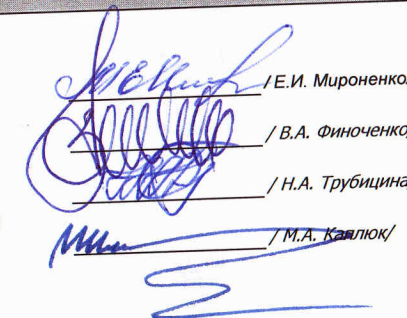 / Е.И. Мироненко
/ В.А. Финоченко
/ Н.А. Трубицина
/ М.А. Каплюк/